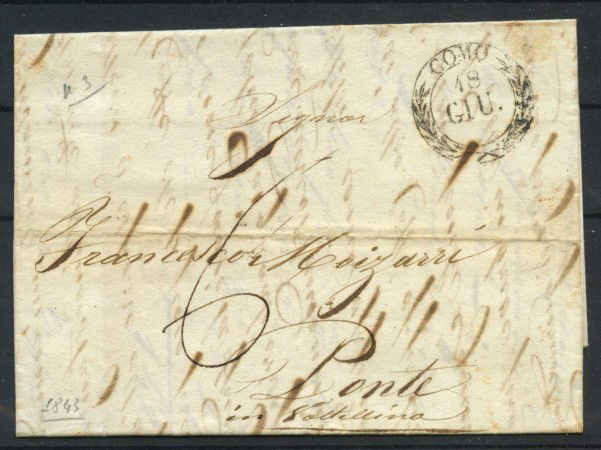 COMO
18
GIU.
n 3
Signor
Francesco Moizarri
6
Ponte
in Valtellina
1843